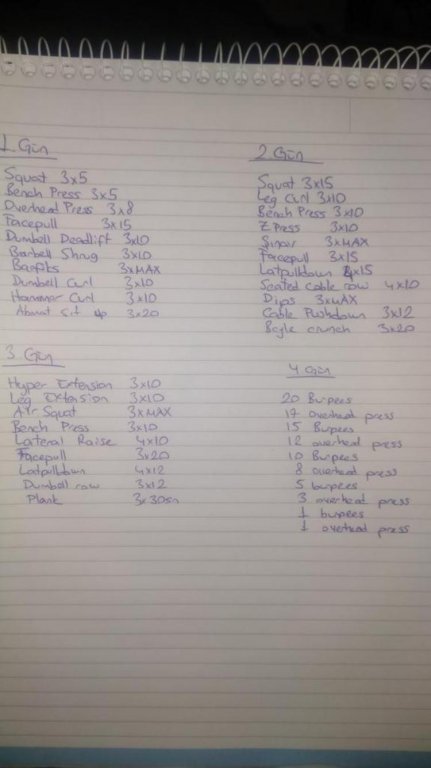 1. Gün
Squat 3x5
Bench Press 3x5
Overhead Press 3x8
Facepull 3x15
Dumbell Deadlift 3x10
Barbell Shrug 3x10
3xMAX
Dumbell Curl 3x10
Hammer Curl 3x10
Abmat Sit up 3x20
2 Gün
Squat 3x15
Leg Curl 3x10
Bench Press 3x10
Z Press 3x10
Şınav 3xMAX
Facepull 3x15
Latpulldown 4x15
Seated Cable row 4x10
Dips 3xMAX
Cable Pushdown 3x12
crunch 3x20
3. Gün
Hyper Extension 3x10
Leg Extension 3x10
Air Squat 3xMAX
Bench Press 3x10
Lateral Raise 4x10
Facepull 3x20
Latpulldown 4x12
Dumbell row 3x12
Plank 3x30sn
4 Gün
20 Burpees
17 overhead press
15 Burpees
12 overhead press
10 Burpees
8 overhead press
5 burpees
3 overhead press
1 burpees
1 overhead press